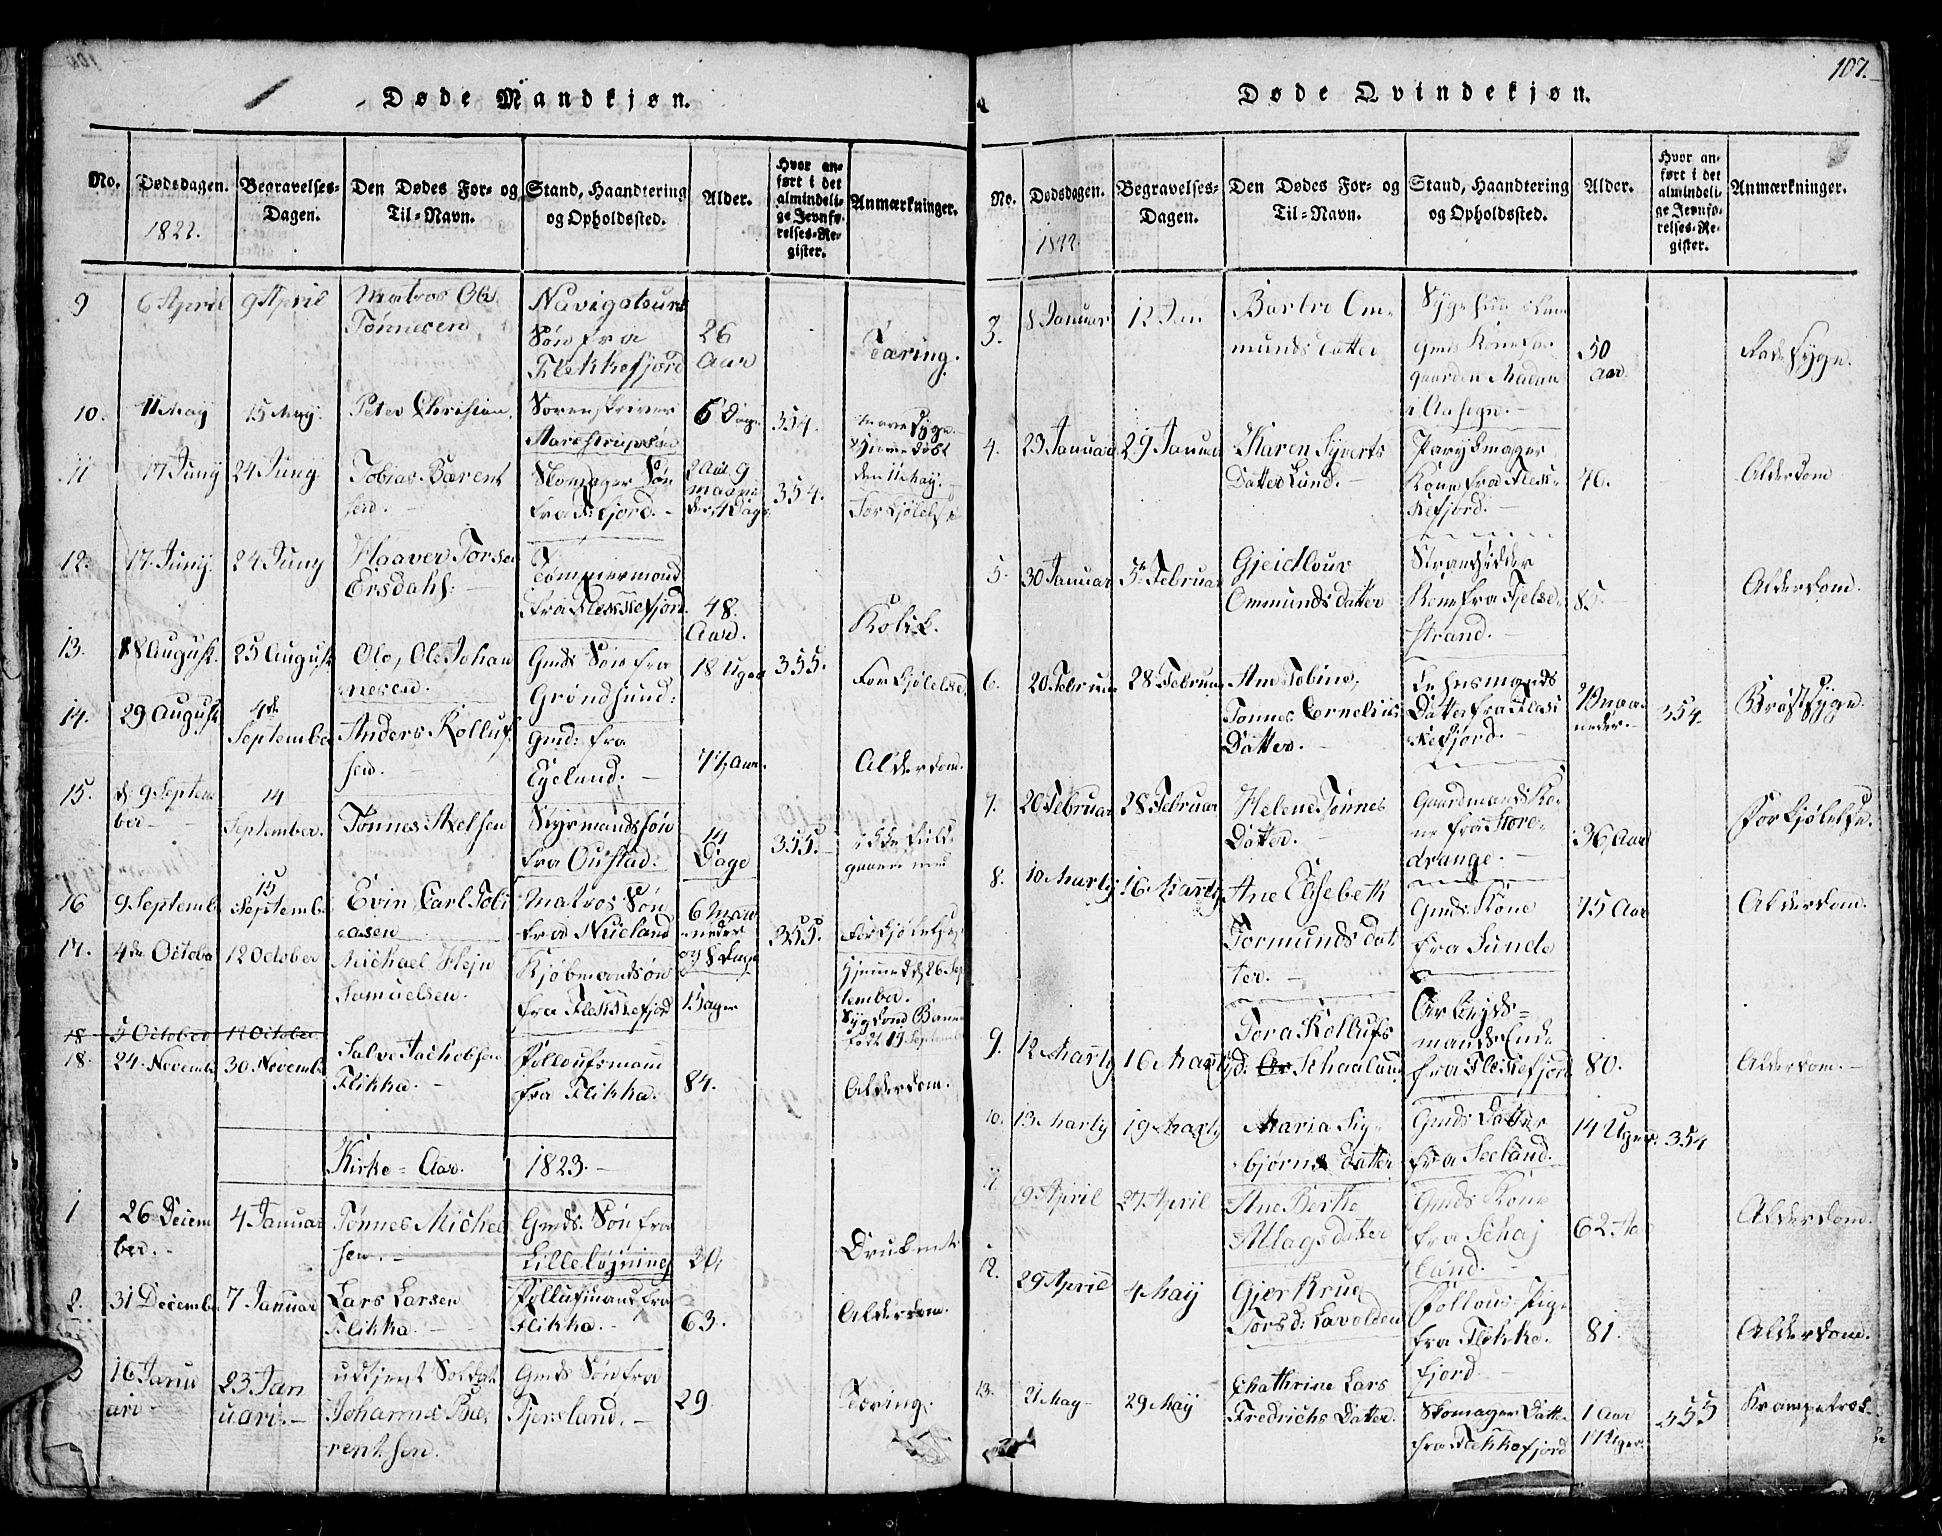 107.
Døde Mandkjøn.
No.
Dødsdagen.
1822.
Begravelses-
Dagen.
Den Dødes For- og
Til-Navn.
Stand, Haandtering
og Opholdssted.
Alder.
Hvor an-
ført i det
almindeli-
ge Jevnfø-
relses-Re-
gister.
Anmærkninger.
9 6 April 9 April Matros Ole
Tønnesen
Navigateurs
Søn fra
Flekkefjord
26
Aar
Tæring.
10. 11 May 15 May. Peter Christian Sorenskriver
6 Dage 354.
Hjemmedøbt
den 11 May.
11 17 Juny 24 Juny Tobias Bærent
sen.
Skomager Søn
2 Aar 9
354.
Forkjølelse
12. 17 Juny. 24 Juny Haaver Torsen
Ersdahl.
Tømmermand
fra Flekkefjord.
48.
Aar.
Kolik.
13. 18 August. 25 August Ole, Ole Johan
nesen.
Gmds Søn fra
Grøndsund:
18 Uger 355.
Forkjølelse
14. 29 August 4de
September
Anders Rolluf
sen.
Gmd: fra
Egeland.
77 Aar.
Alderdom.
15. d. 9 Septem
ber
14
September.
Tønnes Axelsen
Styrmandssøn
fra Oustad:
14
Dage
355.
16 9 Septemb 15
Septemb
Evin Carl Tobi
asen
Matros Søn
fra Nueland
6 Maa
neder
og 8 Dage
355.
Forkjølelse
17. 4de October 12 October Michael Heju
Samuelsen.
Kjøbmandssøn
fra Flekkefjord
15 ager
Hjemmed d. 26 Sep
tember.
18 9 October 12 October
18. 24. Novemb 30 Novemb Salve Jachobsen
Flikka.
Folloufsmand
fra Flikka.
84.
Alderdom.
Kirke = Aar. 1823.
1 26 Decem
ber.
4 Januar Tønnes Michel
sen.
Gmds. Søn fra
Lilleløjning
30.
Druknet
2. 31 Decemb 7 Januar Lars Larsen
Flikka.
Follufmand fra
Flikka.
63.
Alderdom.
3 16 Janu
ari
23 Jan
uari.
udtjent Soldat
Johannes Bæ
rentsen.
Gmds Søn fra
Fjersland.
29.
Tæring.
Døde Qvindekjøn.
No.
Dødsdagen.
1822.
Begravelses-
Dagen.
Den Dødes For- og
Til-Navn.
Stand, Haandtering
og Opholdssted.
Alder.
Hvor an-
ført i det
almindeli-
ge Jevnfø-
relses-Re-
gister.
Anmærkninger.
3. 8 Januar 12 Jan Barbro Om-
munds datter
50
Aar.
Radesyge.
4. 23 Januar 29 Januar Karen Syverts
Datter Lund.
Parykmager
Kone fra Flek-
kefjord.
76.
Alderdom
5. 30 Januar 5te Februar Gjeidlour
Ommunds datter
Strandsidder
Kone fra Fjelse
strand.
85.
Alderdom.
6. 20 Februar 28 Februar Ane Tobine,
Tønnes Cornelius
Datter.
Lehnsmands
Datter fra Flek
kefjord.
354.
Brøstsyge.
7. 20 Februar 28 Februar Helene Tønnes
Datter.
Gaardmands Ko-
ne fra Store-
drange.
36 Aar
Forkjølelse.
8. 10 Marty 16 Marty Ane Elisebeth
Tormunds dat
ter.
Gmds. Kone
fra Sunde
75 Aar
Alderdom.
9. 12 Marty 16 Marty Tora Rollufs
d: Schaaland
Arbeyds=
mands Enke
fra Flekkefjord
80.
Alderdom.
10. 13 Marty 19 Marty Maria Sig-
bjørns datter
Gmds Datter
fra Seeland.
14 Uger. 354
11. 19 April 27 April Ane Berthe
Atlags datter
Gmds Kone
fra Schaj
land.
62 Aar
Alderdom.
12. 29 April 4 May Gjer Krue
Tors d: Lavolden
fra Flekke-
fjord.
81.
Alderdom.
13. 21 May 29 May Chathrine Lars
Fredrichs Datter.
Skomager Datter
fra Flekkefjord
1 Aar
11 Uger.
355
Krampetræk-